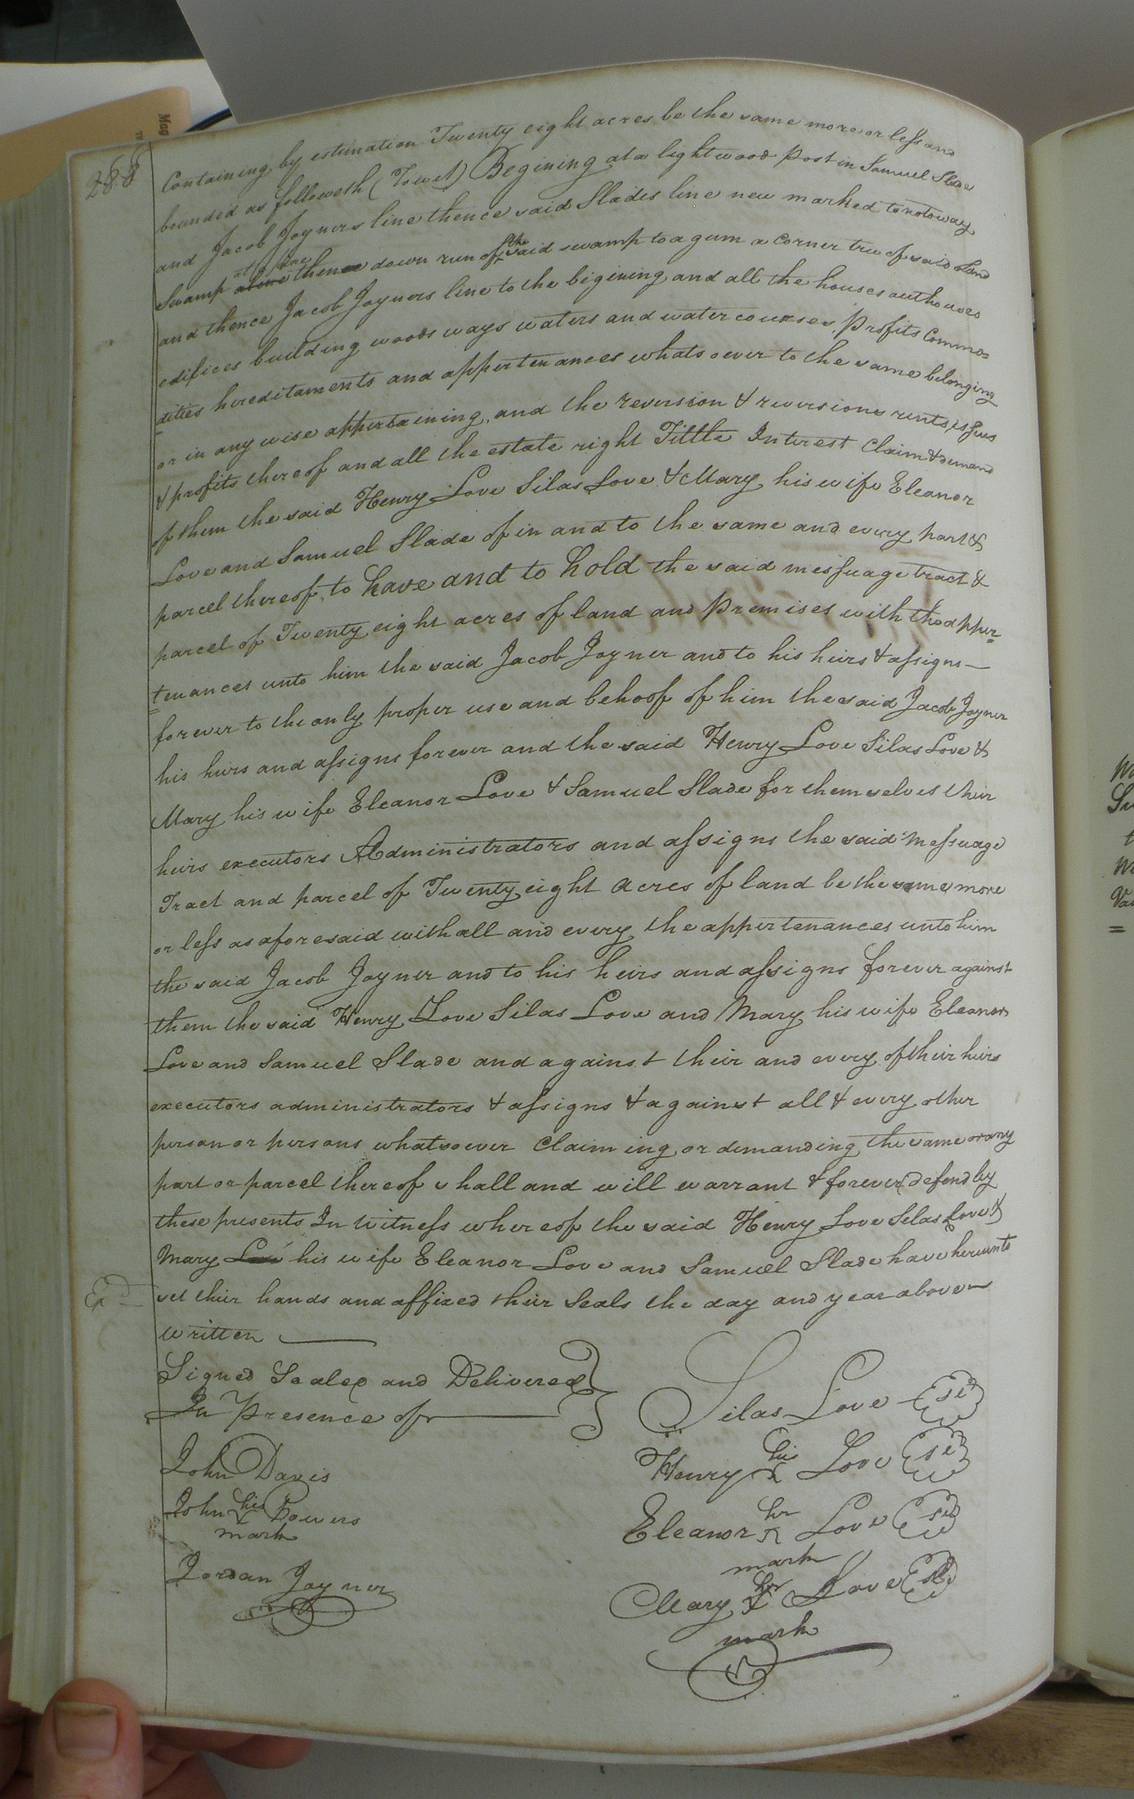 288
Containing by estimation Twenty eight acres be the same more or less and
bounded as followeth (Towet) Begining at a lightwood Post in Samuel Slade
and Jacob Joyners line thence said Slades line new marked to notoway
Swamp thence down run of the said swamp to a gum a corner tree of said Land
and thence Jacob Joyners line to the begining and all the houses outhouses
edifices building woods ways waters and water courses, Profits Commo=
dities hereditaments and appertenances whatsoever to the same belonging
or in any wise appertaining, and the reversion & reversions rents, issues
& profits thereof and all the estate right Tittle Interest Claim & demand
of them the said Henry Love Silas Love & Mary his wife Eleanor
Love and Samuel Slade of in and to the same and every part &
parcel thereof, to have and to hold the said messuage tract &
parcel of Twenty eight acres of land and Premises with the apper=
tenances unto him the said Jacob Joyner and to his heirs & assigns—
forever to the only proper use and behoof of him the said Jacob Joyner
his heirs and assigns forever and the said Henry Love Silas Love &
Mary his wife Eleanor Love & Samuel Slade for themselves their
heirs executors Administrators and assigns the said Messuage
Tract and parcel of Twenty eight acres of land be the same more
or less as aforesaid with all and every the appertenances unto him
the said Jacob Joyner and to his heirs and assigns forever against
them the said Henry Love Silas Love and Mary his wife Eleanor
Love and Samuel Slade and against their and every of their heirs
executors administrators & assigns & against all & every other
person or persons whatsoever Claiming or demanding the same or any
part or parcel thereof shall and will warrant & forever defend by
these presents In Witness whereof the said Henry Love Silas Love &
Mary his wife Eleanor Love and Samuel Slade have hereunto
Exd set their hands and affixed their Seals the day and year above
written
Signed Sealed and Delivered
In Presence of
Silas Love
John Davis
Henry his x Love
John his Bowers
mark
Eleanor her x Love
mark
Jordan Joyner
Mary her x Love
mark